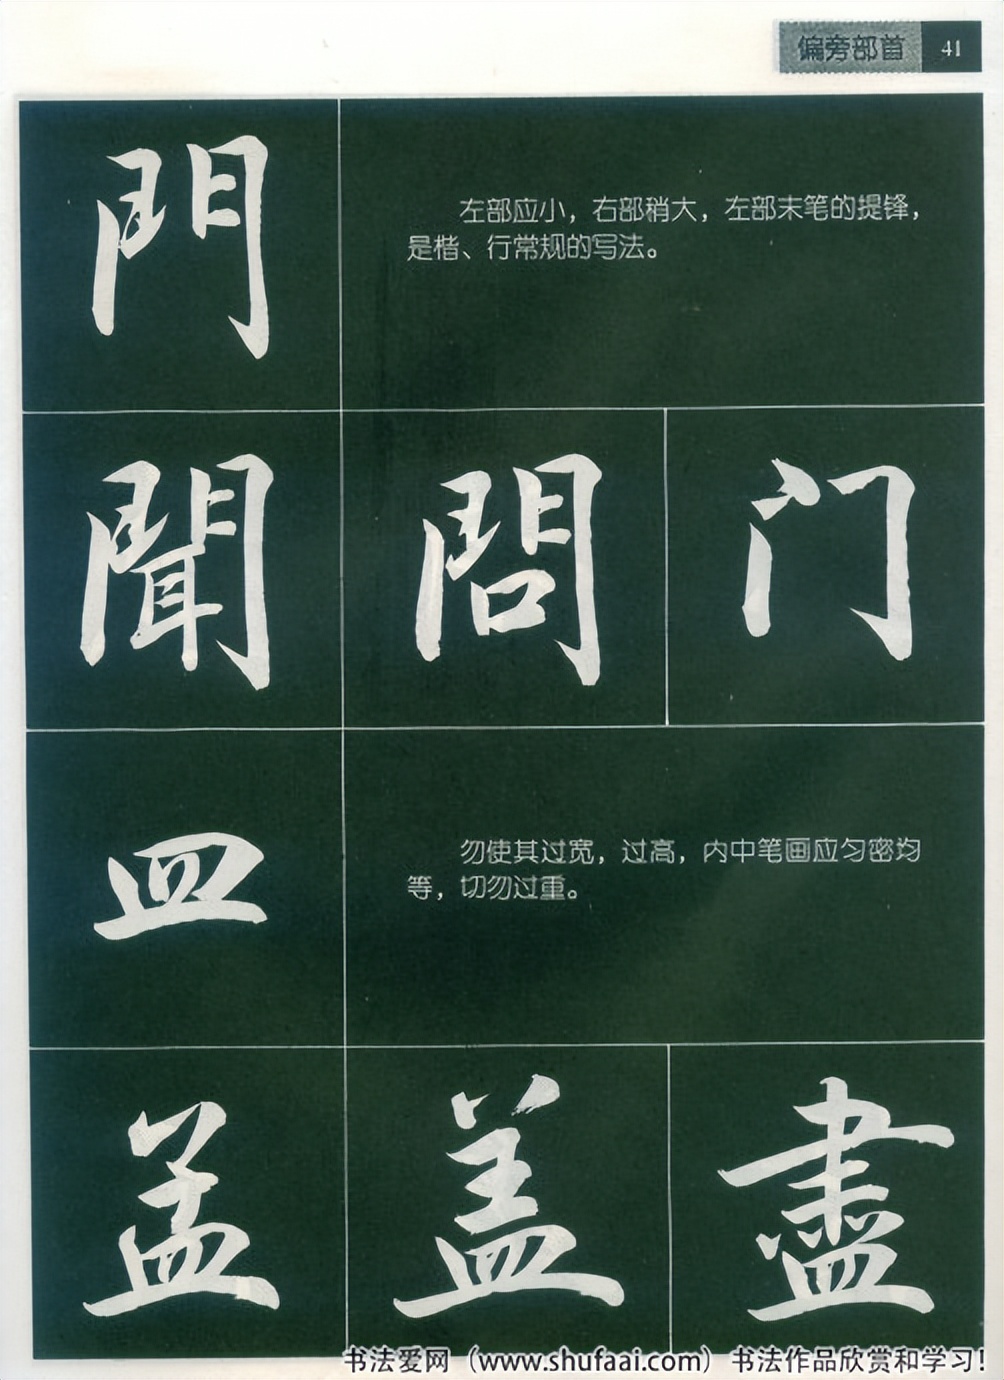 偏旁部首 41
門
左部应小，右部稍大，左部末笔的提锋，
是楷、行常规的写法。
聞 問 门
皿
勿使其过宽，过高，内中笔画应匀密均
等，切勿过重。
孟 盖 盡
书法爱网（www.shufaai.com）书法作品欣赏和学习！